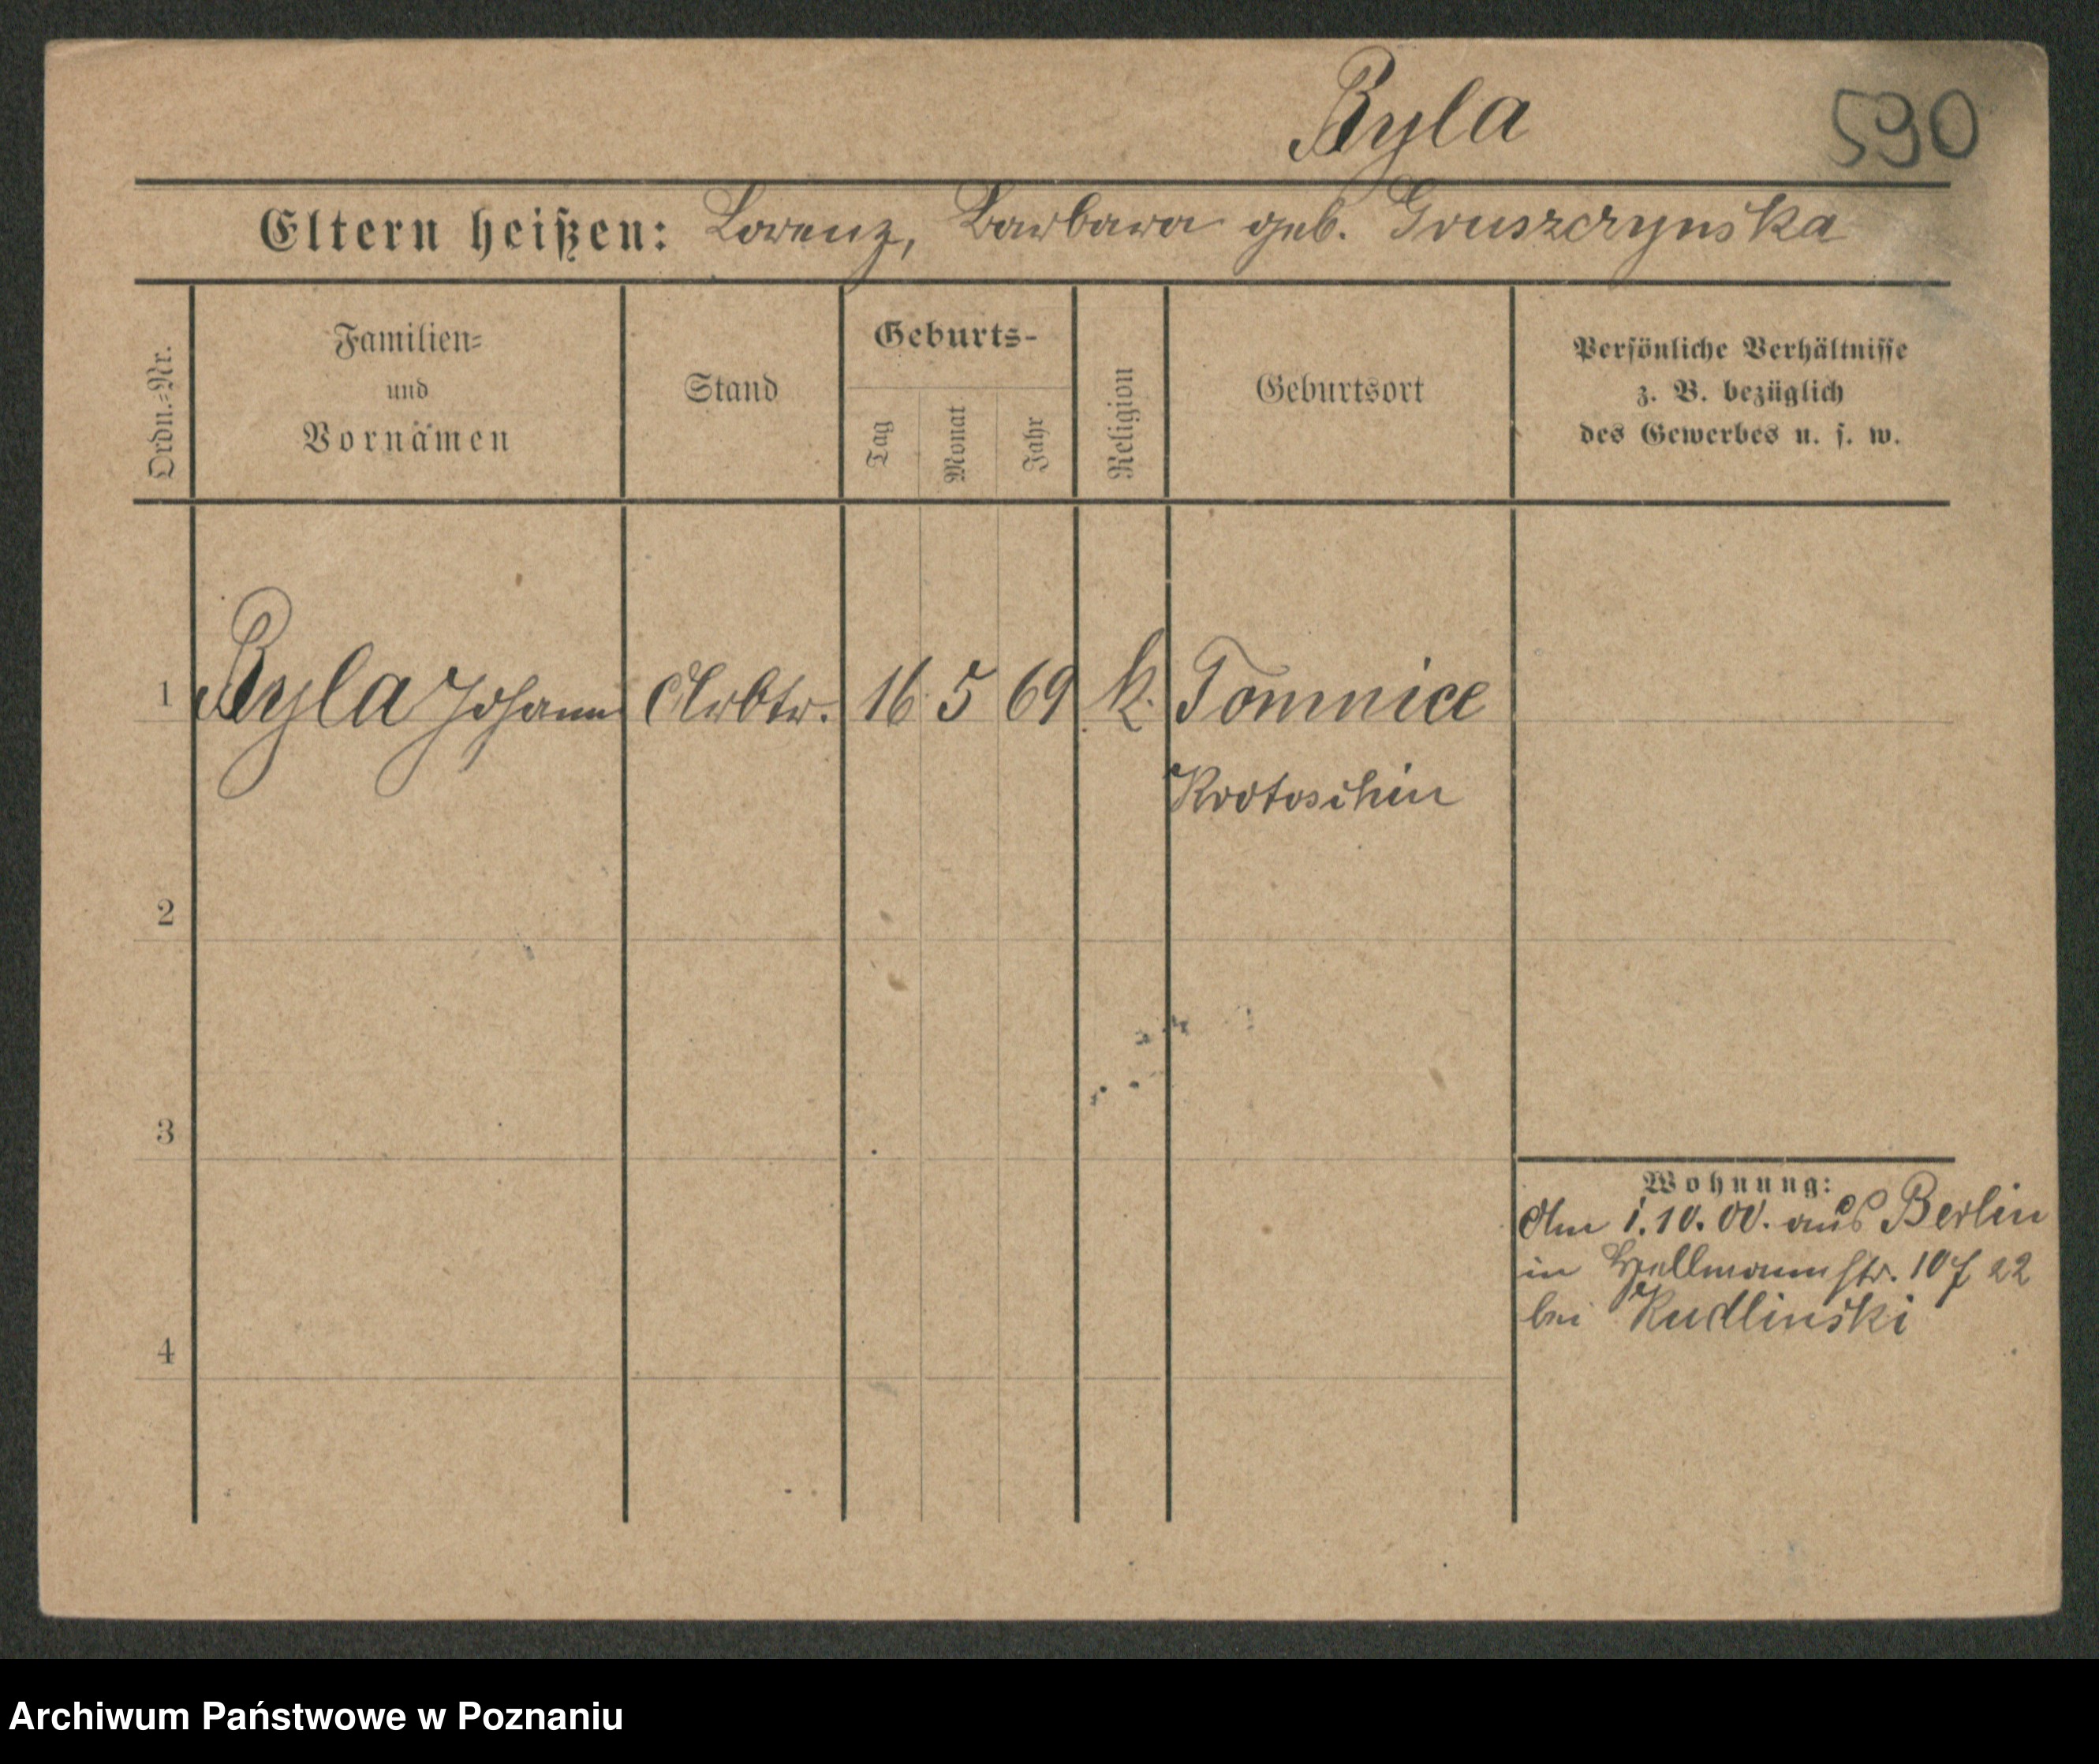 Byla 590
Eltern heißen: Lorenz, Barbara geb. Gruszczynska
Ordn.=Nr.
Familien=
und
Vornamen
Stand
Geburts-
Tag
Monat
Jahr
Religion
Geburtsort
Persönliche Verhältnisse
z. B. bezüglich
des Gewerbes u. s. w.
1 Byla Johann Arbtr. 16 5 69 k. Tomnice
Krotoschin
2
3
Wohnung:
Am 1.10.00. aus Berlin
in str. 10 22
bei Kudlinski
4
Archiwum Państwowe w Poznaniu